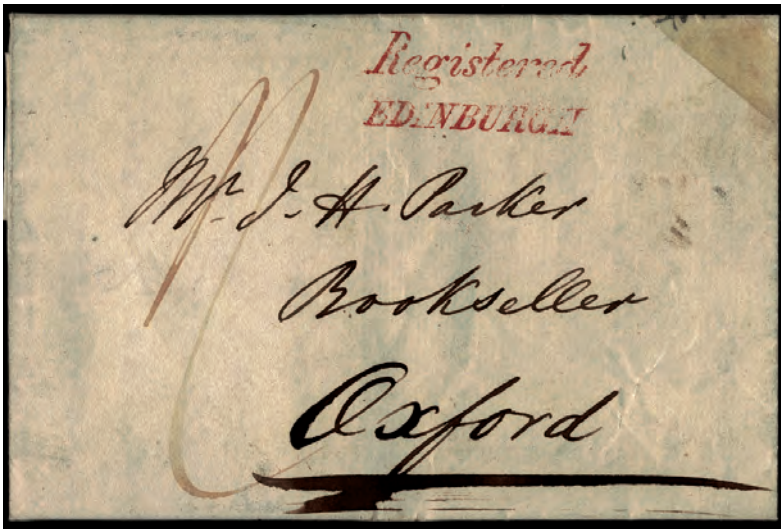 Registered,
EDINBURGH
Mr. J. H. Parker
Bookseller
Oxford